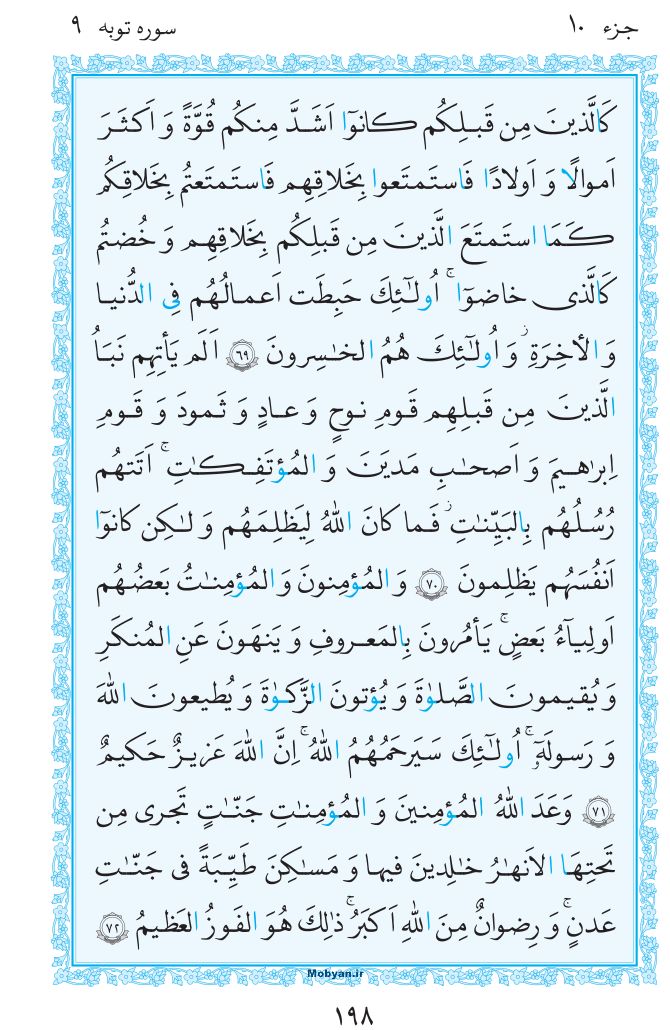 جزء ۱۰
سوره توبه ۹
كَالَّذينَ مِن قَبلِكُم كانوٓا اَشَدَّ مِنكُم قُوَّةً وَ اَكثَرَ
اَموالًا وَ اَولادًا فَاستَمتَعوا بِخَلاقِهِم فَاستَمتَعتُم بِخَلاقِكُم
كَمَا استَمتَعَ الَّذينَ مِن قَبلِكُم بِخَلاقِهِم وَ خُضتُم
كَالَّذى خاضوٓا ۚ اُولـٰٓئِكَ حَبِطَت اَعمالُهُم فِى الدُّنيا
وَ الأخِرَةِ ۖ وَ اُولـٰٓئِكَ هُمُ الخـٰسِرونَ ﴿۶۹﴾ اَلَم يَأتِهِم نَبَأُ
الَّذينَ مِن قَبلِهِم قَومِ نوحٍ وَ عادٍ وَ ثَمودَ وَ قَومِ
اِبرٰهيمَ وَ اَصحـٰبِ مَديَنَ وَ المُؤتَفِكـٰتِ ۚ اَتَتهُم
رُسُلُهُم بِالبَيِّنـٰتِ ۖ فَما كانَ اللّٰهُ لِيَظلِمَهُم وَ لـٰكِن كانوٓا
اَنفُسَهُم يَظلِمونَ ﴿۷۰﴾ وَ المُؤمِنونَ وَ المُؤمِنـٰتُ بَعضُهُم
اَولِيآءُ بَعضٍ ۚ يَأمُرونَ بِالمَعروفِ وَ يَنهَونَ عَنِ المُنكَرِ
وَ يُقيمونَ الصَّلوٰةَ وَ يُؤتونَ الزَّكوٰةَ وَ يُطيعونَ اللّٰهَ
وَ رَسولَهٓ ۚ اُولـٰٓئِكَ سَيَرحَمُهُمُ اللّٰهُ ۚ اِنَّ اللّٰهَ عَزيزٌ حَكيمٌ
﴿۷۱﴾ وَعَدَ اللّٰهُ المُؤمِنينَ وَ المُؤمِنـٰتِ جَنّـٰتٍ تَجرى مِن
تَحتِهَا الاَنهـٰرُ خـٰلِدينَ فيها وَ مَسـٰكِنَ طَيِّبَةً فى جَنّـٰتِ
عَدنٍ ۚ وَ رِضوانٌ مِنَ اللّٰهِ اَكبَرُ ۚ ذٰلِكَ هُوَ الفَوزُ العَظيمُ ﴿۷۲﴾
Mobyan.ir
۱۹۸